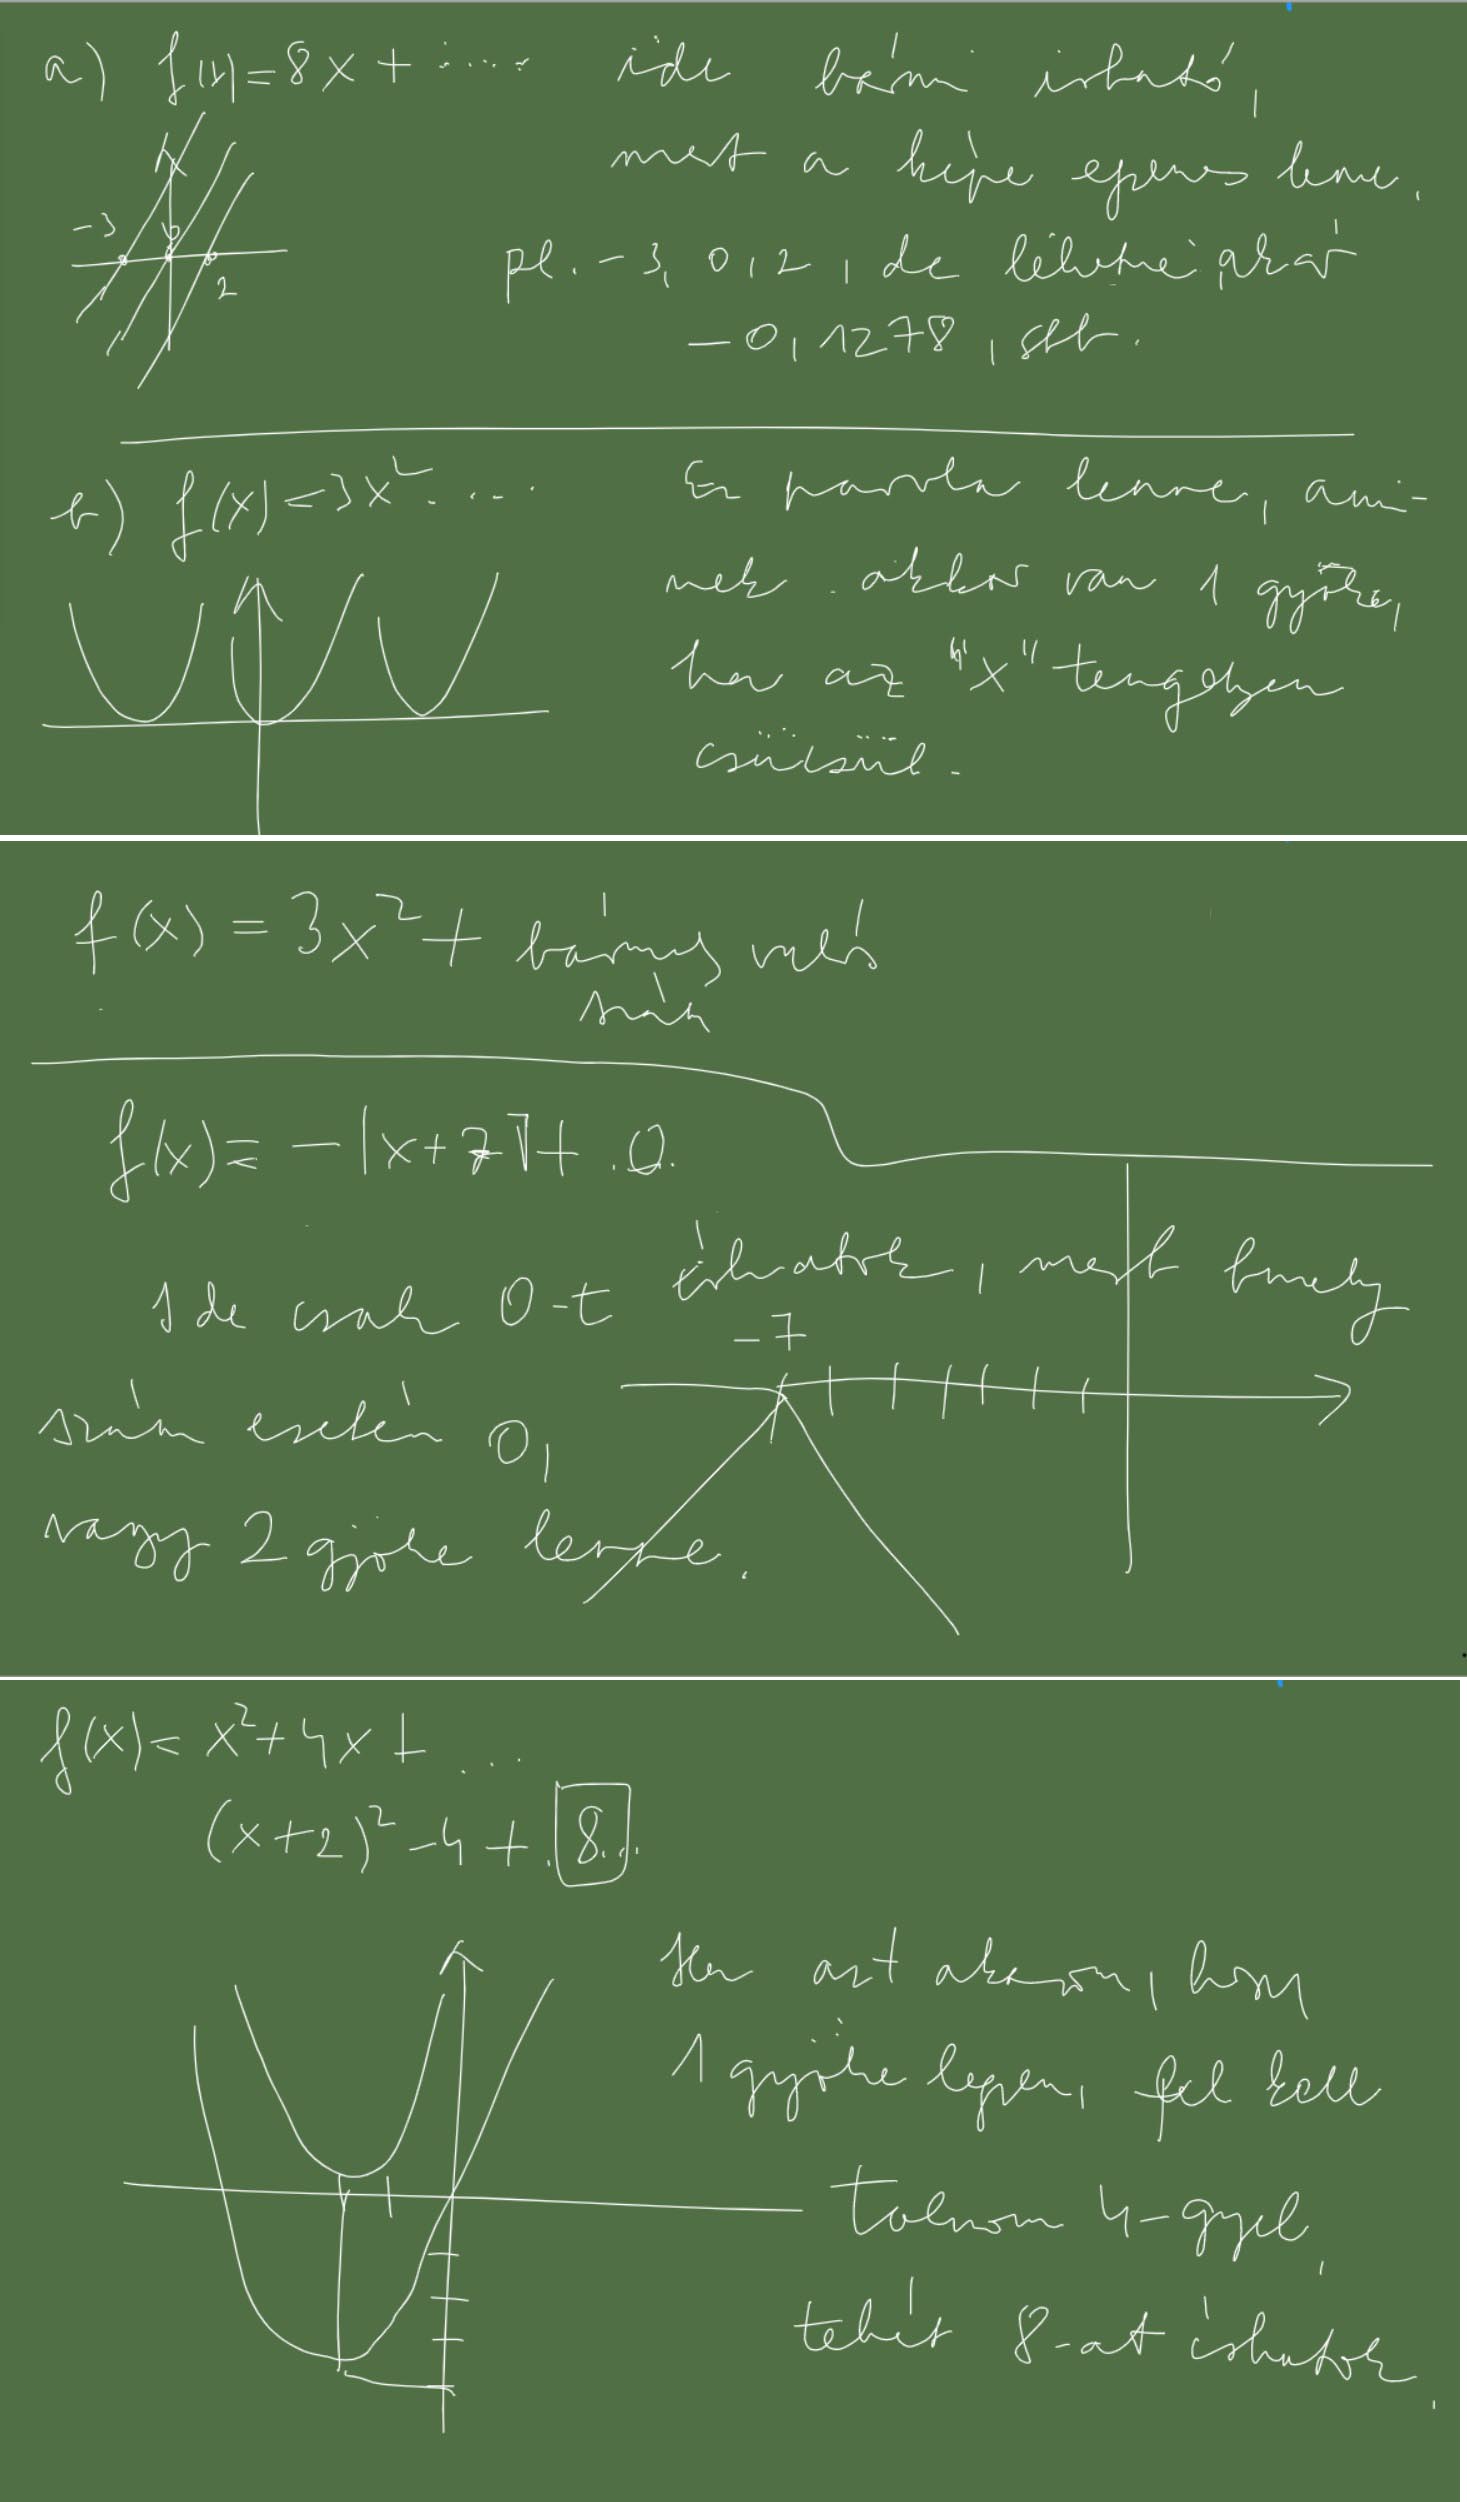 a) f(x)=8x+ ..... ide bármi írható,
mert a képe egyenes lenne.
-3 0 2
pl. -3, 0, 2, de lehetne, akár
-0,1278, stb.
b) f(x)=3x² .... Ez parabola lenne, ami-
nek akkor van 1 gyöke,
ha az "x" tengelyen
csücsül.
f(x) = 3x² + bármely való
szám
f(x) = -|x+7|+.0.
Ide csak 0-t írhatok, mert bármely
-7
szám esetén 0,
vagy 2 gyöke lenne.
f(x)= x²+4x+ ....
(x+2)²-4+.8..
Ha azt akarom, hogy
1 gyöke legyen, fel kell
tolnom 4-gyel,
tehát 8-at írhatok.